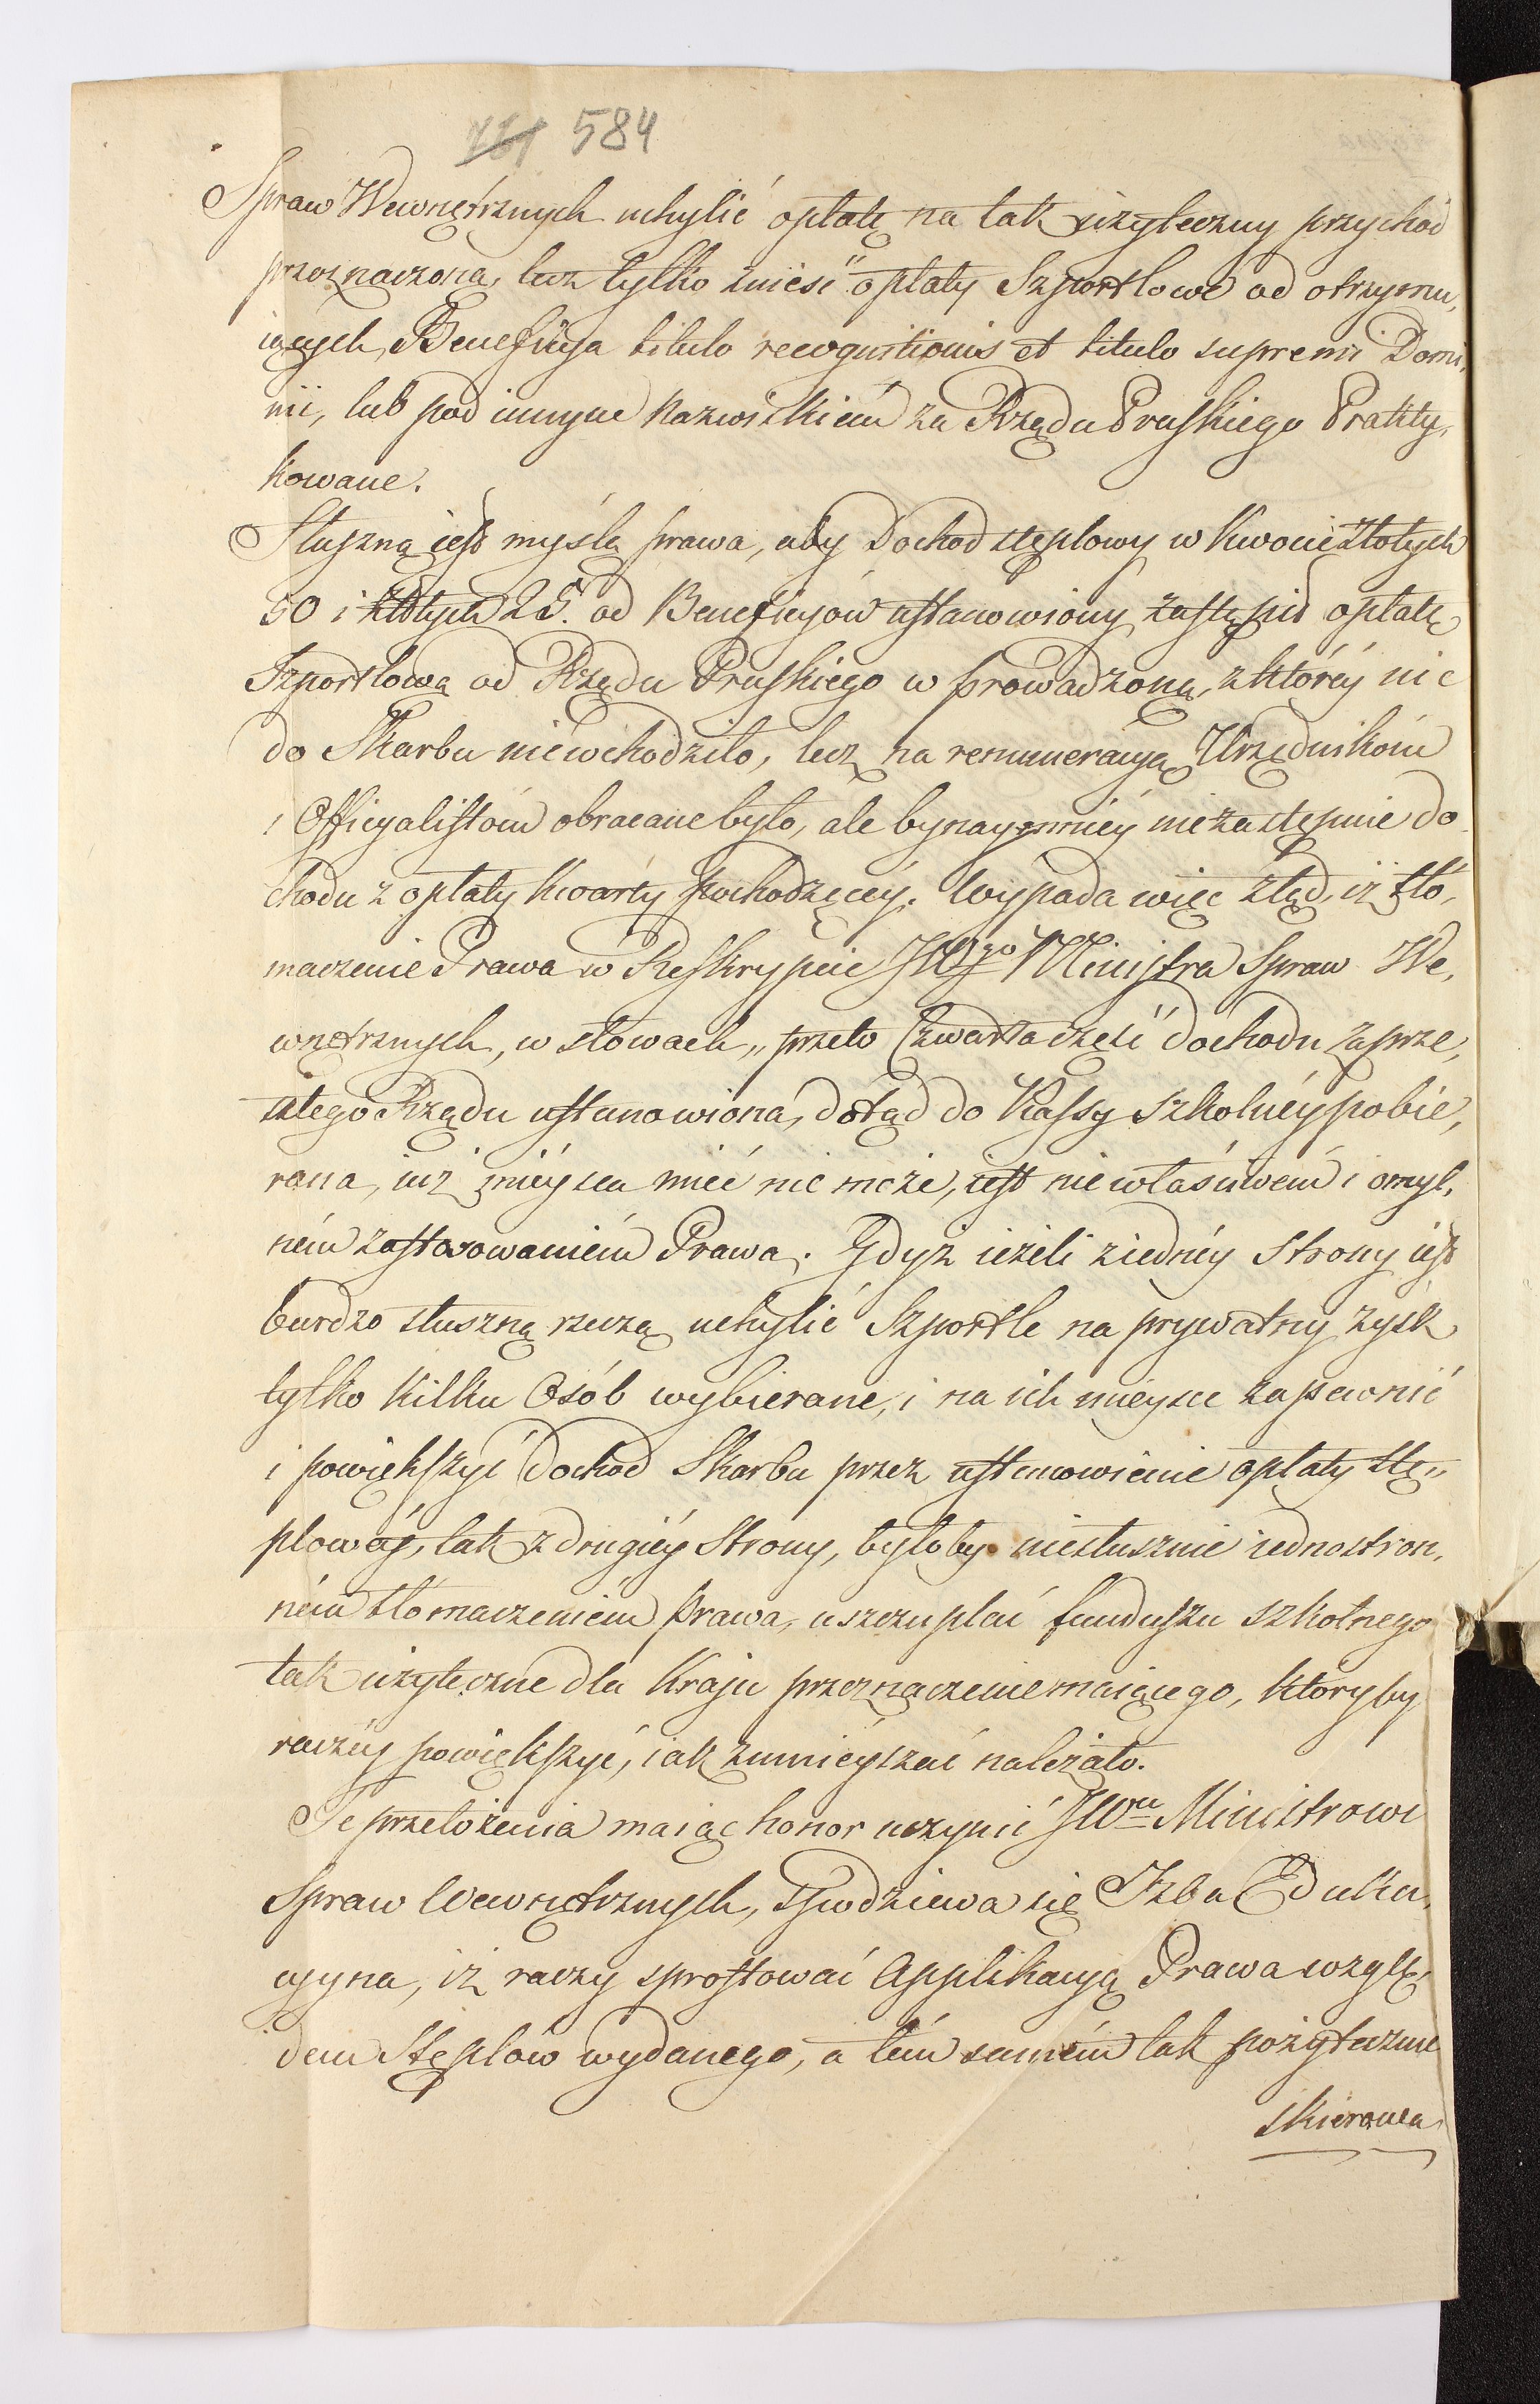 584
Spraw Wewnętrznych uchylić opłatę na tak użyteczny przychód
przeznaczoną, lecz tylko znieść opłaty Szportlowe od otrzymu,
iących Beneficya titulo recognitionis et titulo supremi Domi,
nii, lub pod innym nazwiskiem za Rządu Pruskiego Prakty,
kowane.
Słuszną iest myślą prawa, aby Dochod stęplowy w Kwocie Złotych
50 i Złotych 25. od Beneficyów ustanowiony zastąpił opłatę
Szportlową od Rządu Pruskiego w prowadzoną, z któréy nic
do Skarbu niewchodziło, lecz na remuneracyą Urzędnikóm
i Officyalistóm obracane było, ale bynaymniéy nie zastępuie do
chodu z opłaty kwarty pochodzącéy. Wypada więc ztąd, iż tło,
maczenie Prawa w Reskrypcie JWgo Ministra Spraw We,
wnętrznych, w słowach „ przeto Czwarta część dochodu zaprze,
szłego Rządu ustanowiona, dotąd do Kassy szkolnéy pobie,
rana, iuż mieysca mieć nie może, iest niewłaściwem i omyl,
ném zastosowaniém Prawa. Gdyż ieżeli z iednéy Strony iest
bardzo słuszną rzeczą uchylić Szportle na prywatny zysk
tylko kilku Osób wybierane, i na ich mieysce zapewnić
i powiększyć Dochod Skarbu przez ustanowienie opłaty stę„
plowéy, tak z drugiéy Strony, byłoby niesłusznie iednostron,
ném tłómaczeniém prawa, uszczuplać funduszu szkolnego
tak użyteczne dla Kraju przeznaczenie maiącego, któryby
raczéy powiększyć, iak zmnieyszać należało.
Te przełożenia maiąc honor uczynić JWu Ministrowi
Spraw Wewnętrznych, spodziewa się Izba Eduka,
cyyna, iż raczy sprostować Applikacyą Prawa wzglę,
dem Stęplów wydanego, a tém samém tak pożyteczne
skierowa